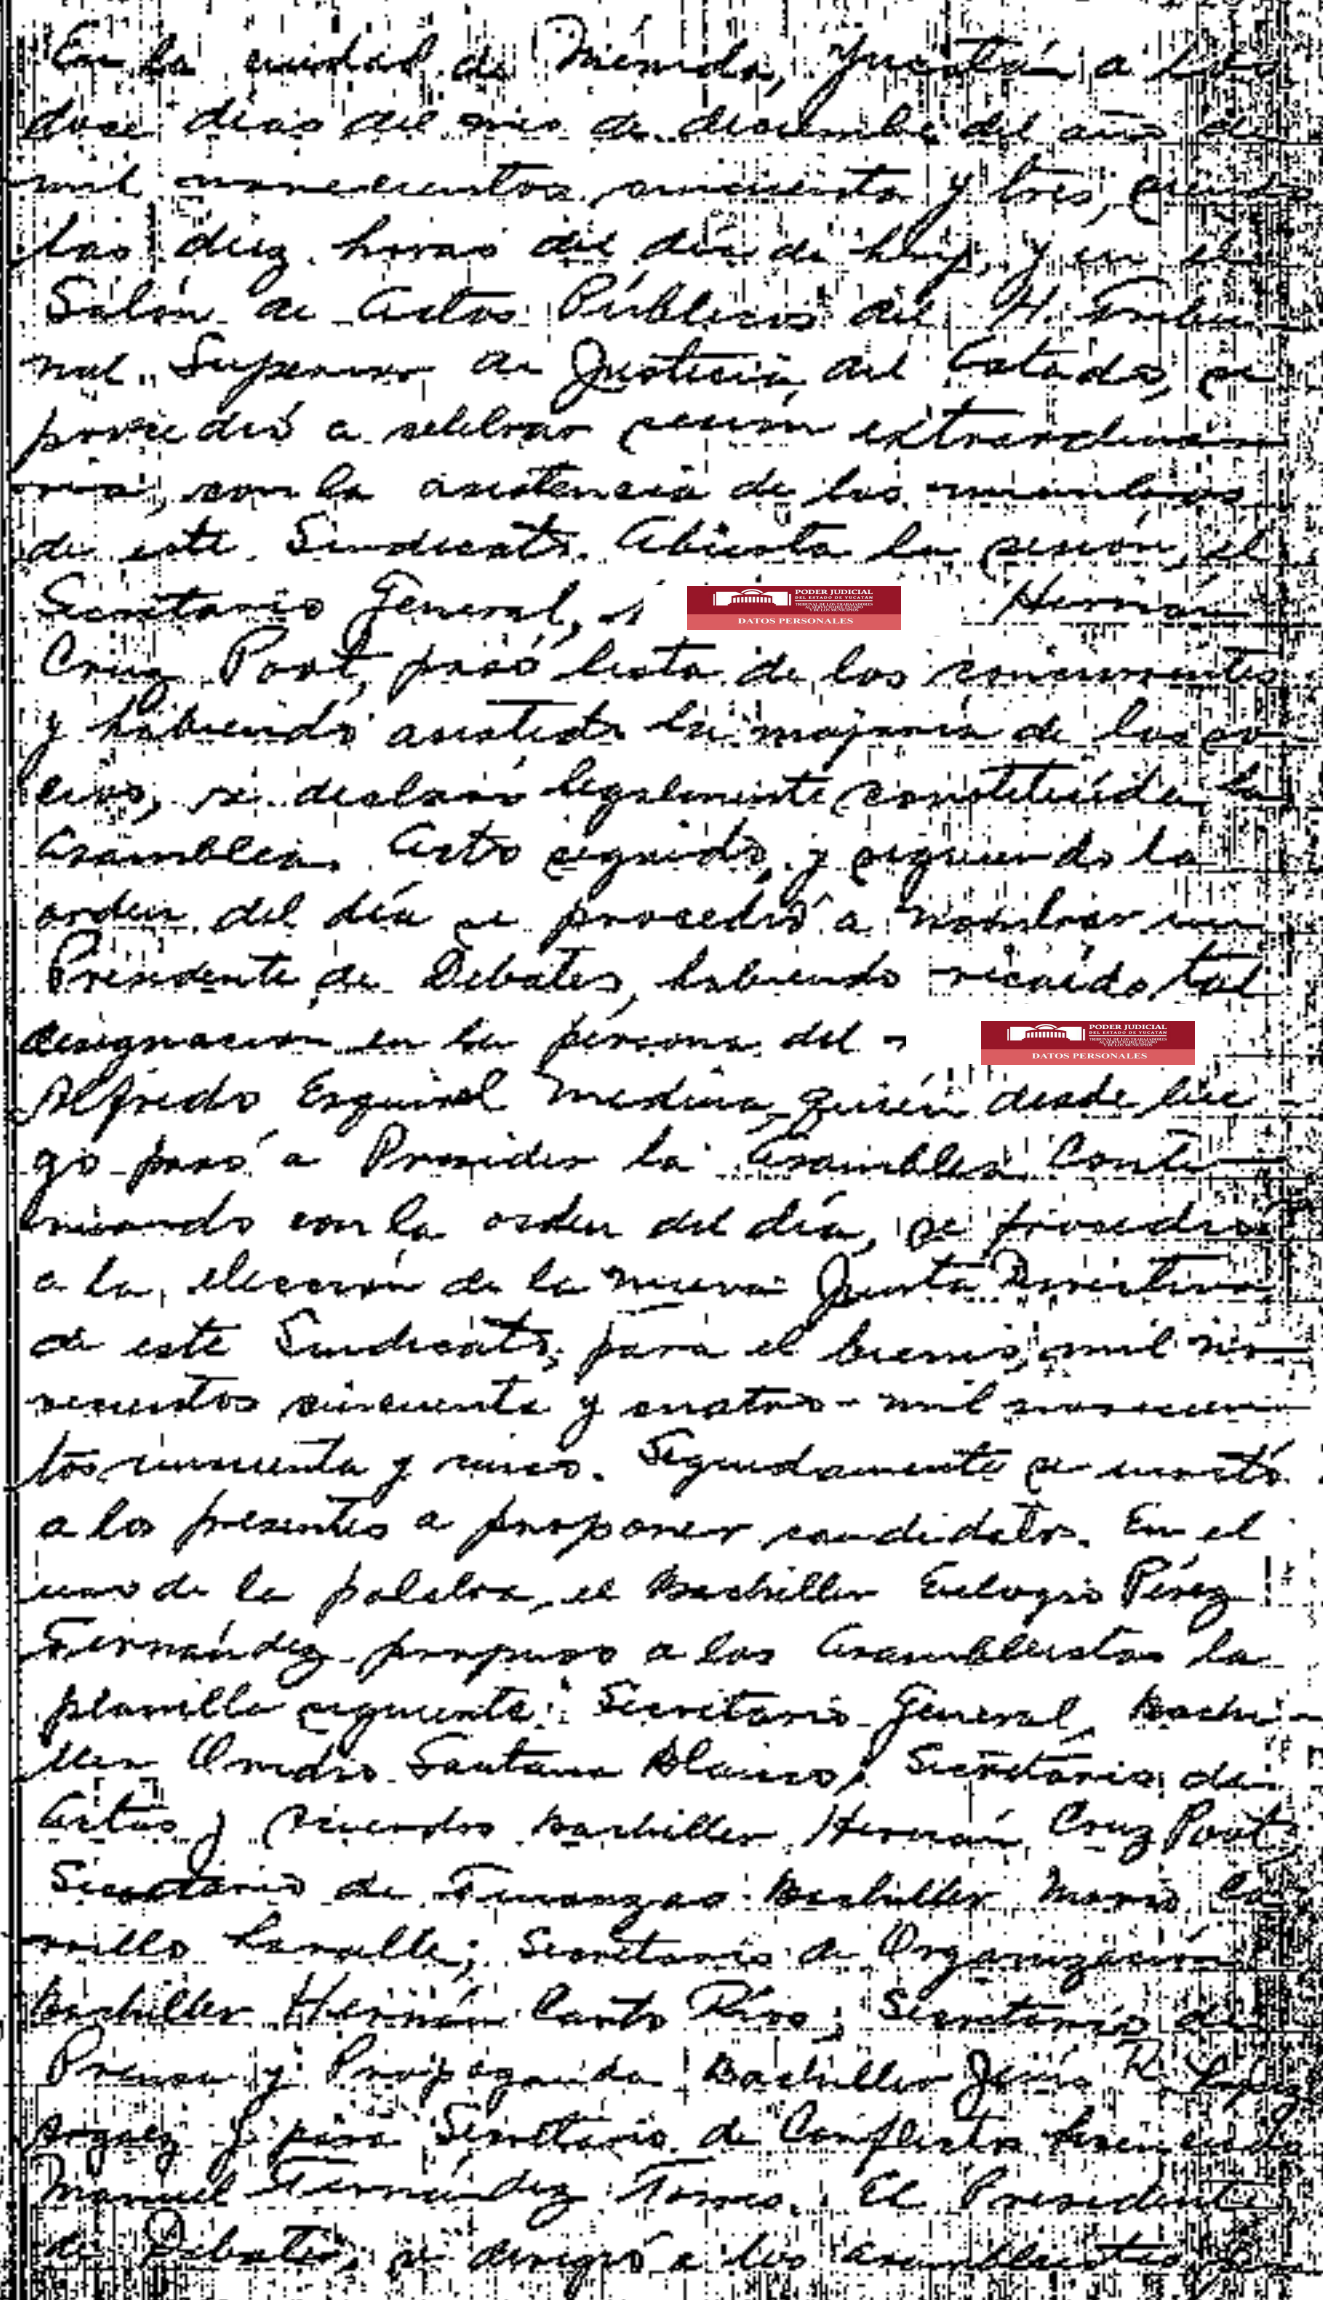 En la ciudad de Mérida, Yucatán a los
doce días del mes de diciembre del año de
mil novecientos cincuenta y tres, siendo
las diez horas del día de hoy, y en el
Salón de Actos Públicos del H. Tribu
nal Superior de Justicia del Estado, se
procedió a celebrar sesión extraordina
ria, con la asistencia de los miembros
de este Sindicato. Abierta la sesión, el
Secretario General, PODER JUDICIAL DEL ESTADO DE YUCATÁN TRIBUNAL DE LOS TRABAJADORES DATOS PERSONALES Hernán
Cruz Poot, pasó lista de los concurrentes
y habiendo asistido la mayoría de los so
cios, se declaró legalmente constituída la
Asamblea. Acto seguido, y siguiendo la
orden del día se procedió a nombrar un
Presidente de Debates, habiendo recaído tal
designación en la persona del PODER JUDICIAL DEL ESTADO DE YUCATÁN TRIBUNAL DE LOS TRABAJADORES DATOS PERSONALES
Alfredo Esquivel Medina, quién desde lue
go pasó a Presidir la Asamblea. Conti
nuando con la orden del día, se procedió
a la elección de la nueva Junta Directiva
de este Sindicato, para el bienio, mil no
vecientos cincuenta y cuatro - mil novecien
tos cincuenta y cinco. Seguidamente se invitó
a los presentes a proponer candidatos. En el
uso de la palabra, el Bachiller Eulogio Pérez
Fernández propuso a los Asambleistas la
planilla siguiente: Secretario General, Bachi-
ller Onedio Santana Blanco; Secretario de
Actas y Acuerdos Bachiller Hernán Cruz Poot
Secretario de Finanzas Bachiller Mario Ca
rrillo Lavalle; Secretario de Organización
Bachiller Hernán Canto Ríos; Secretario de
Prensa y Propaganda Bachiller Jesús R.
y para Secretario de Conflictos Licenciado
Manuel Fernández Torres. El Presidente
de Debates, se dirigió a los asambleistas